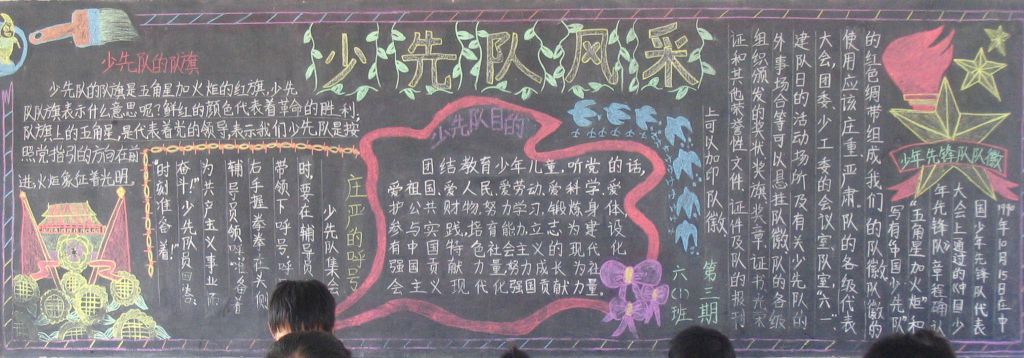 少先队风采
少先队的队旗
少先队的队旗是五角星加火炬的红旗,少先
队队旗表示什么意思呢?鲜红的颜色代表着革命的胜利,
队旗上的五角星,是代表着党的领导,表示我们少先队是按
照党指引的方向在前
进,火炬象征着光明。
庄严的呼号
少先队集会
时,要在辅导员
带领下呼号,呼
右手握拳举
辅导员领:"准备着
为共产主义事业而
奋斗!"少先队员回答:
"时刻准备着!"
少先队目的
团结教育少年儿童,听党的话,
爱祖国、爱人民、爱劳动、爱科学、爱
护公共财物,努力学习,锻炼身体,
参与实践,培养能力,立志为建设
有中国特色社会主义现代化
强国贡献力量,努力成长为社
会主义现代化强国贡献力量。
少年先锋队队徽
年10月15日在中
国少年先锋队代表
大会上通过的《中国少
年先锋队》章程确认
"五角星加火炬"和
写有"中国少先队"
的红色绸带组成我们的队徽,队徽的
使用应该庄重、严肃。队的各级代表
大会,团委、少工委的会议室,队室,六一、
建队日的活动场所及有关少先队的
外事场合等可以悬挂队徽。队的各级
组织颁发的奖状、奖旗、奖章、证书
证和其他荣誉性文件、证件及队的报刊
上可以加印队徽。
第三期
六(1)班